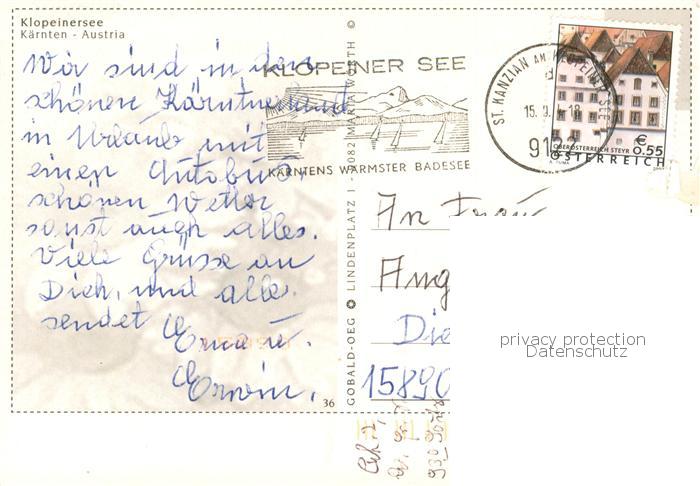 Klopeinersee
Kärnten - Austria
Wir sind in dem
schönen Kärntnerland
in Urlaub mit
einen Autobus
schönen Wetter
sonst auch alles.
Viele Grüsse an
Dich, und alle.
sendet
Erna u.
Erwin.
36
KLOPEINER SEE
KÄRNTENS WÄRMSTER BADESEE
GOBALD-OEG LINDENPLATZ 1 - 9082 MARIA WÖRTH ©
ST. KANZIAN AM KLOPEINER SEE
15.9. -18
912
OBERÖSTERREICH STEYR
€ 0.55
ÖSTERREICH
An Frau
Ang
Die
15890
privacy protection
Datenschutz